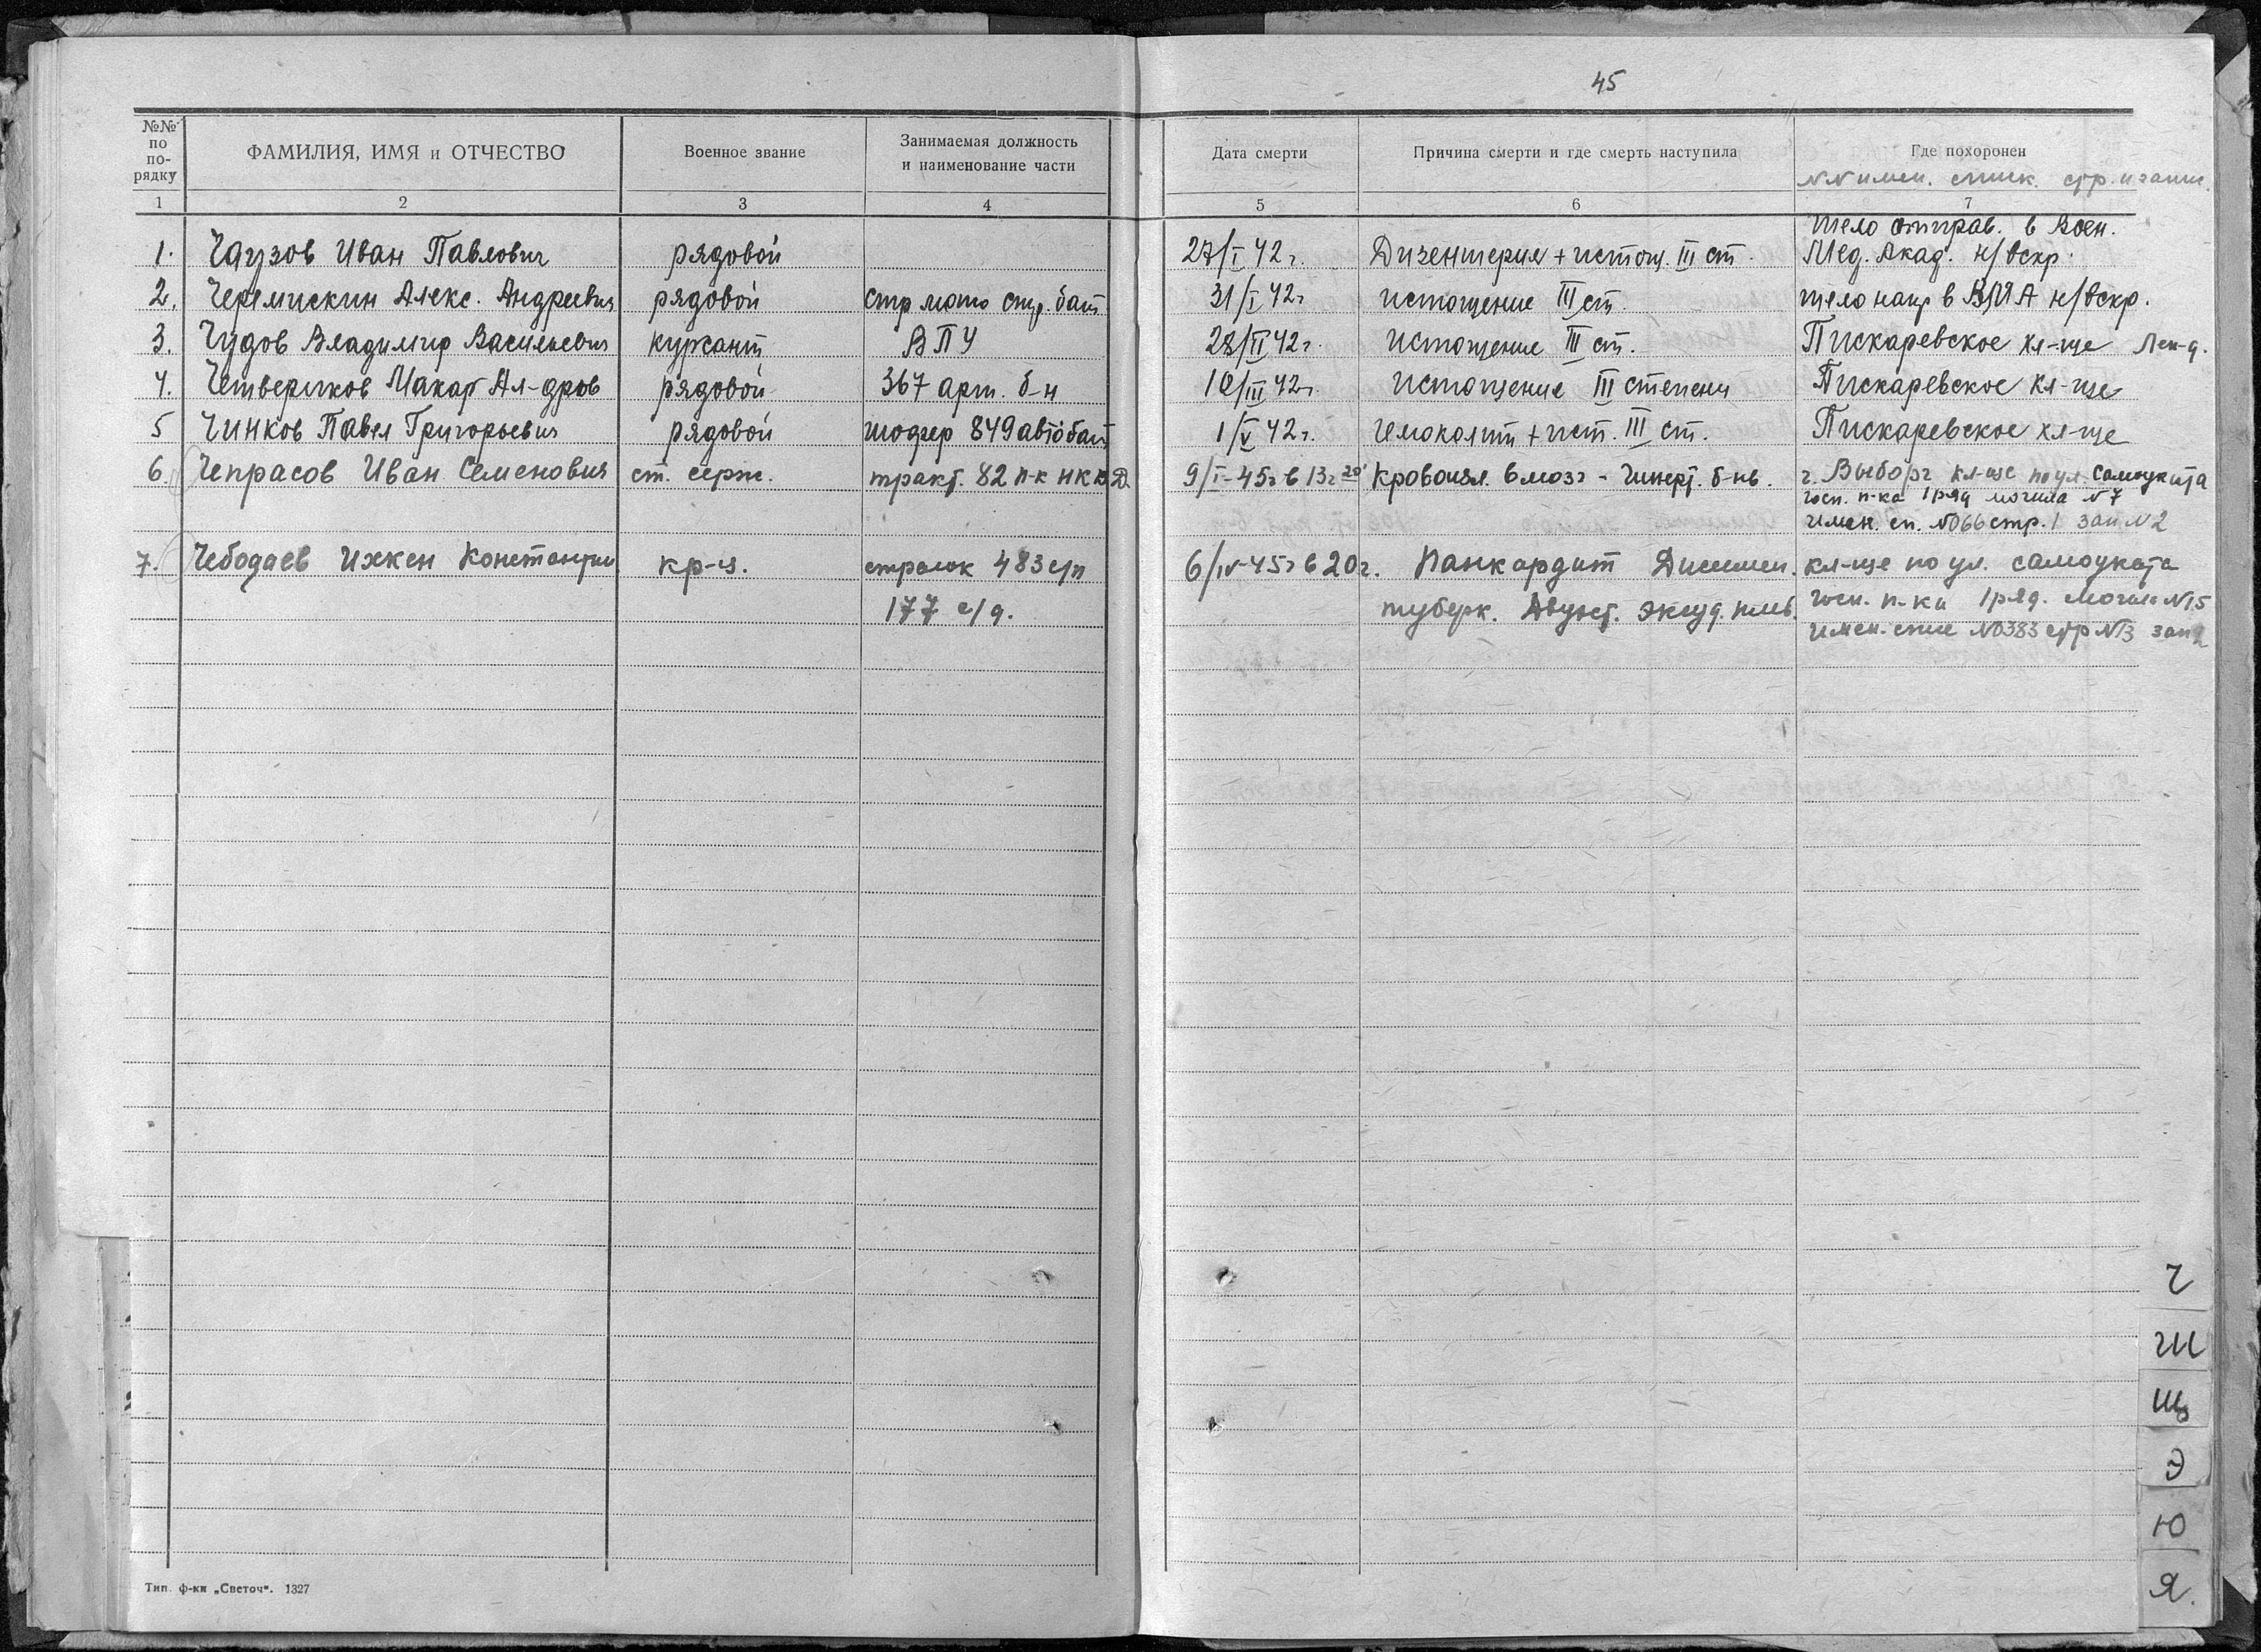 45
№№ по по- рядку
ФАМИЛИЯ, ИМЯ и ОТЧЕСТВО
Военное звание
Занимаемая должность и наименование части
Дата смерти
Причина смерти и где смерть наступила
Где похоронен
№№ имен. списк. стр. и запис.
1 2 3 4 5 6 7
1. Чаузов Иван Павлович рядовой 27/I 42г. Дизентерия + истощ. III ст. Тело отправ. в Воен.
Мед. Акад. н/вскр.
2. Черемискин Алекс. Андреевич рядовой стр мото стр. бат 31/I 42г истощение III ст. тело напр в ВМА н/вскр.
3. Чудов Владимир Васильевич курсант ВПУ 28/II 42г. Истощение III ст. Пискаревское кл-ще Лен-д.
4. Четвериков Макар Ал-дров рядовой 367 арт. б-н 10/III 42г. Истощение III степени Пискаревское кл-ще
5 Чинков Павел Григорьевич рядовой шофер 849 автобат 1/V 42г. Гемоколит + ист. III ст. Пискаревское кл-ще
6. Чепрасов Иван Семенович ст. серж. тракт. 82 п-к НКВД 9/I-45г в 13г 20' Кровоизл. в мозг - Гиперт. б-нь. г. Выборг кл-ще по ул. Самоуката
госп. п-ка 1 ряд могила №7
имен. сп. №066 стр. 1 зап №2
7. Чебодаев Иккен Константин кр-ц. стрелок 483 с/п 6/IV-45г в 20г. Панкардит Диссемин. кл-ще по ул. самоуката
177 с/д. туберк. Двуст. экссуд. плев. госп. п-ка 1 ряд. могила №15
имен. спис №0383 стр №13 зап 2
Ч
Ш
Щ
Э
Ю
Я.
Тип. ф-ки „Светоч". 1327